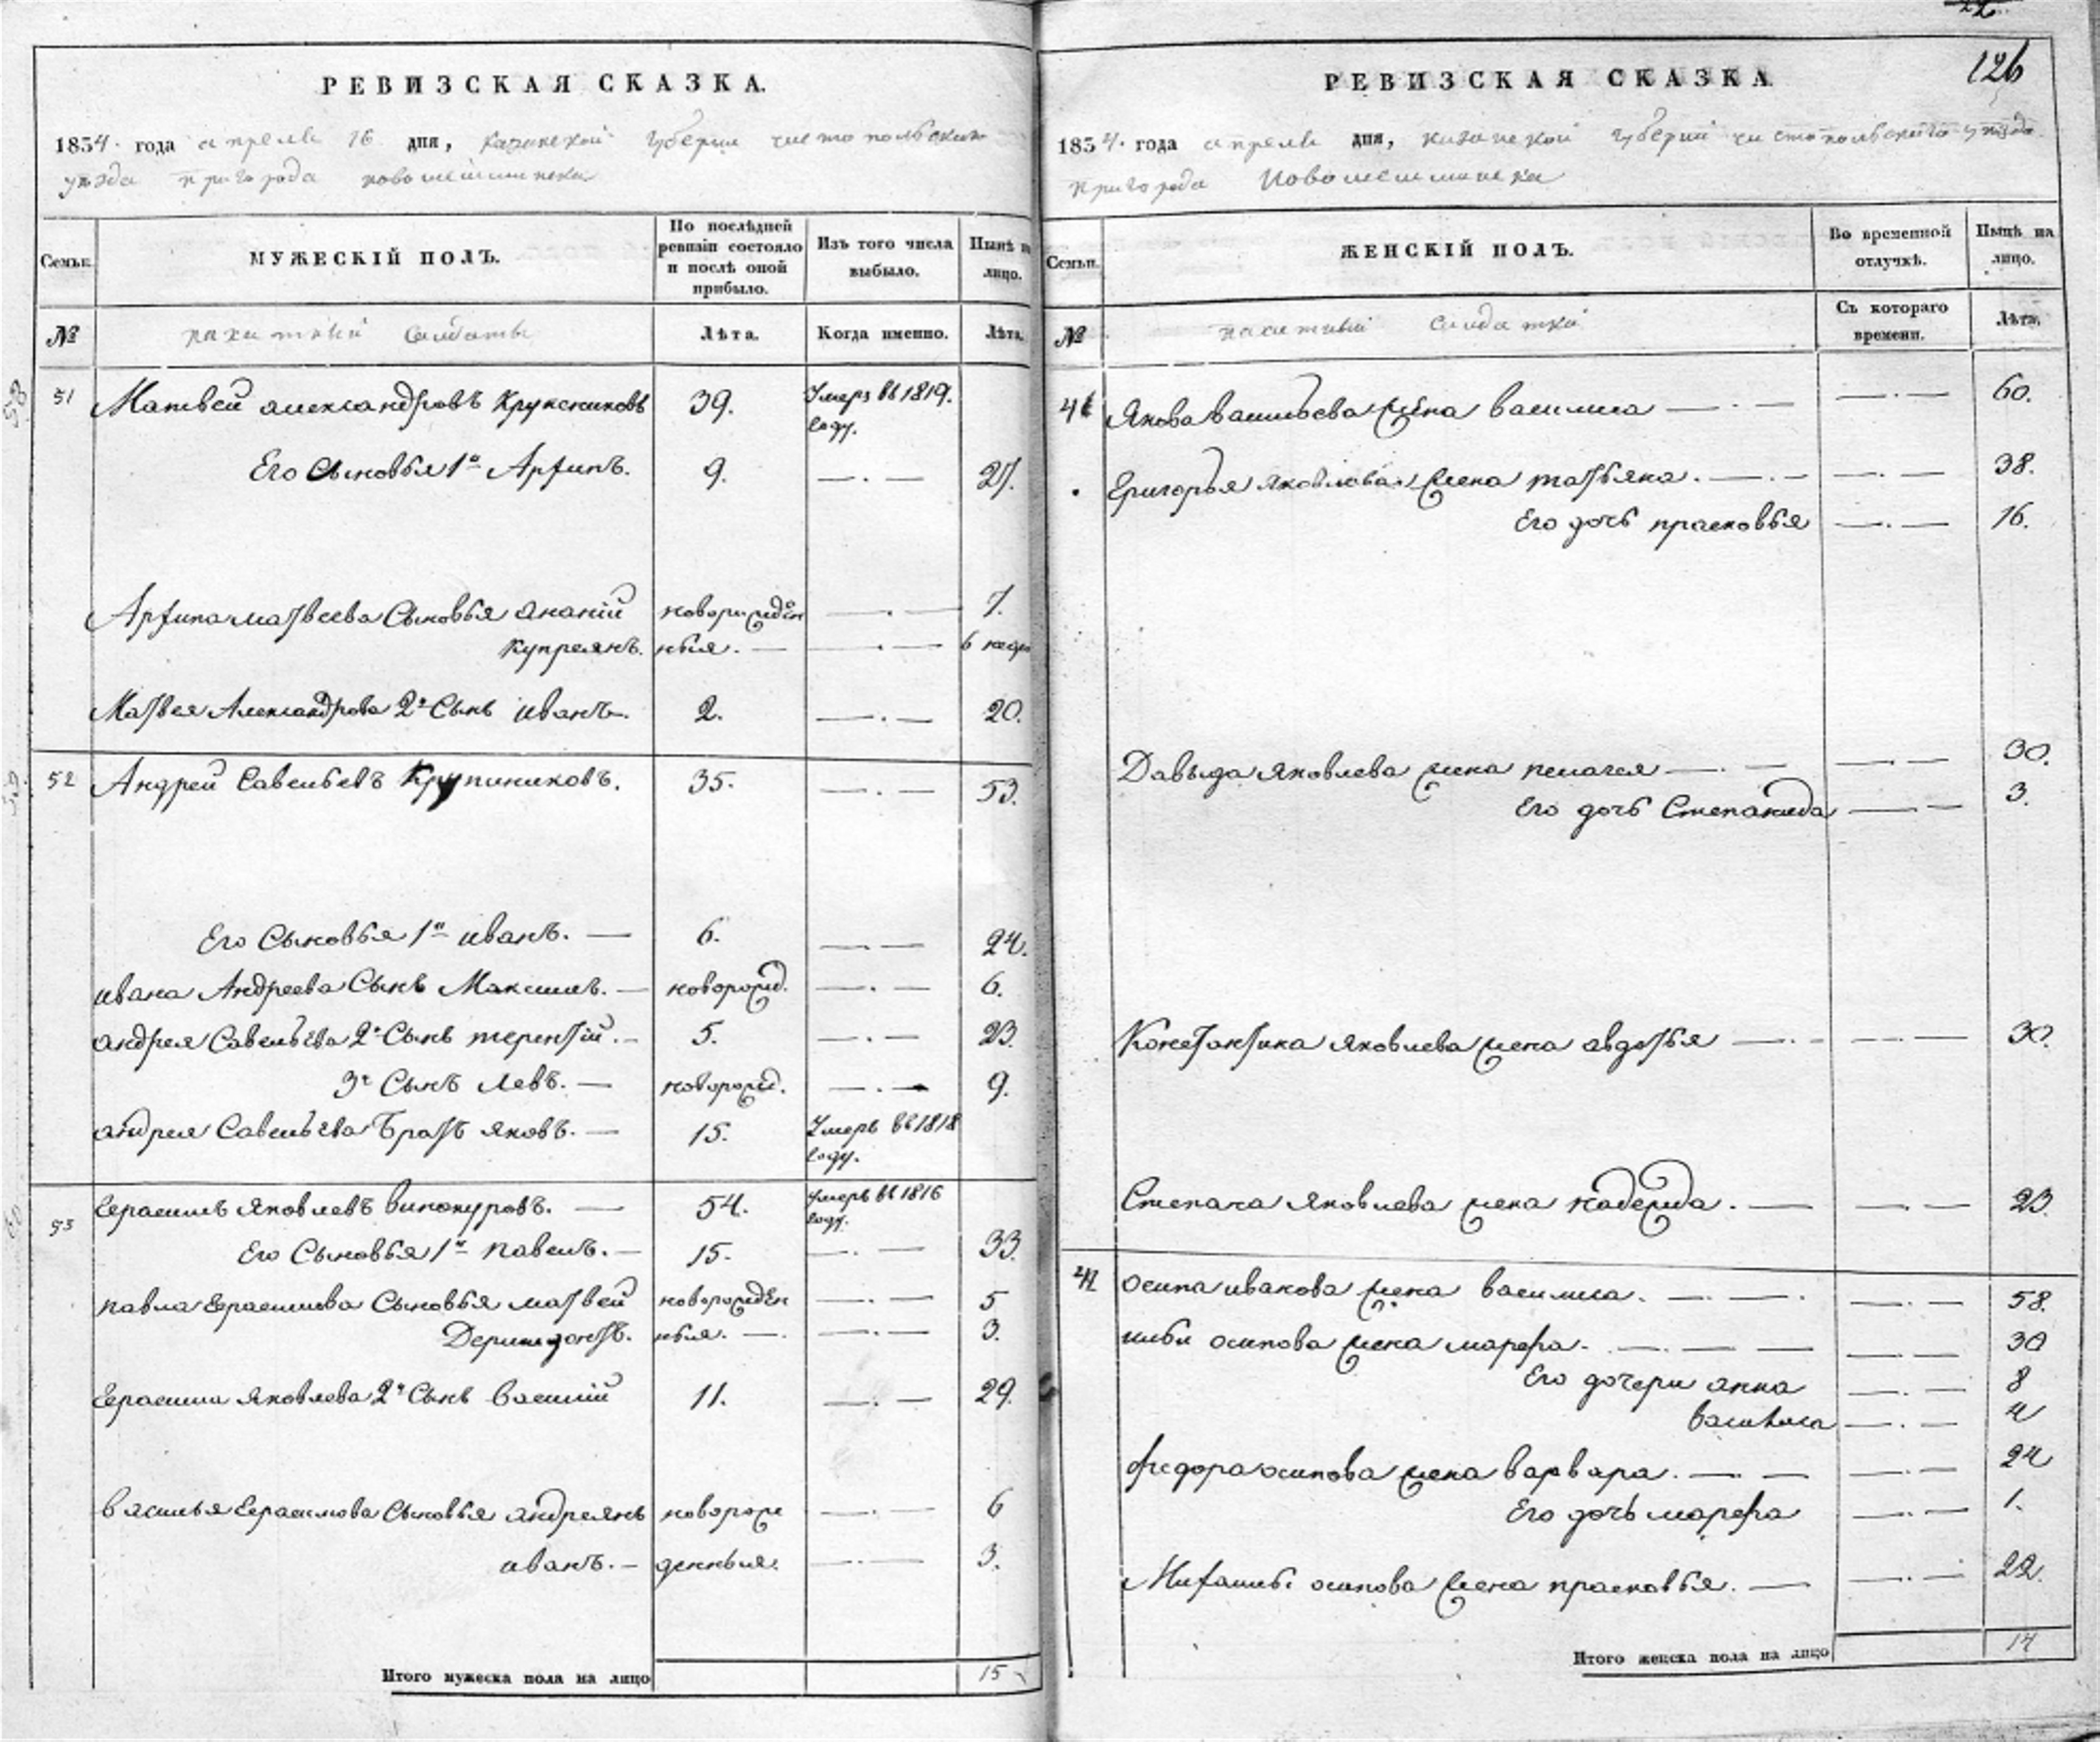 РЕВИЗСКАЯ СКАЗКА.
1834. года апреля 16 дня, казанской губернии чистопольскаго
уезда пригорода новошешминска
Семьи.
МУЖЕСКІЙ ПОЛЪ.
По послѣдней ревизіи состояло и послѣ оной прибыло.
Изъ того числа выбыло.
Нынѣ на лицо.
№
пахатныи салдаты
Лѣта.
Когда именно.
Лѣта.
51 Матвей александровъ 39. Умеръ въ 1819.
году.
Его Сыновья 1й Архипъ. 9. 27.
Архипа матвеева Сыновья ананій новорожден 7.
Купреянъ. ныя. 6 недѣ
Матвея Александрова 2й Сынъ иванъ. 2. 20.
52 Андрей Савельевъ Крупиниковъ. 35. 53.
Его Сыновья 1й иванъ. 6. 24.
ивана Андреева Сынъ Максимъ. новорожд. 6.
андрея Савельева 2й Сынъ терентій. 5. 23.
3й Сынъ Левъ. новорожд. 9.
андрея Савельева Братъ яковъ. 15. Умеръ въ 1818
году.
53 Герасимъ яковлевъ винокуровъ. 54. умеръ въ 1816
году.
Его Сыновья 1й павелъ. 15. 33.
павла Герасимова Сыновья матвей новорожден 5
ныя. 3.
Герасима яковлева 2й Сынъ василій 11. 29.
василья Герасимова Сыновья андреянъ новорож 6
иванъ. денныя. 3.
Итого мужеска пола на лицо 15
126
РЕВИЗСКАЯ СКАЗКА
1834. года апреля дня, казанской губернии чистопольскаго уезда
пригорода новошешминска
Семьи.
ЖЕНСКІЙ ПОЛЪ.
Во временной отлучкѣ.
Нынѣ на лицо.
№
пахатныи салдатки
Съ котораго времени.
Лѣта.
Якова васильева жена василиса 60.
Григорья яковлева жена татьяна. 38.
Его дочь прасковья 16.
Давыда яковлева жена пелагея 30.
Его дочь Степанида 3.
Константина яковлева жена авдотья 30.
Степана яковлева жена надежда. 23.
осипа иванова жена василиса. 58.
осипова жена марфа. 30
Его дочери анна 8
василиса 4
федора осипова жена варвара. 24
Его дочь марфа 1.
осипова жена прасковья. 22.
Итого женска пола на лицо 14